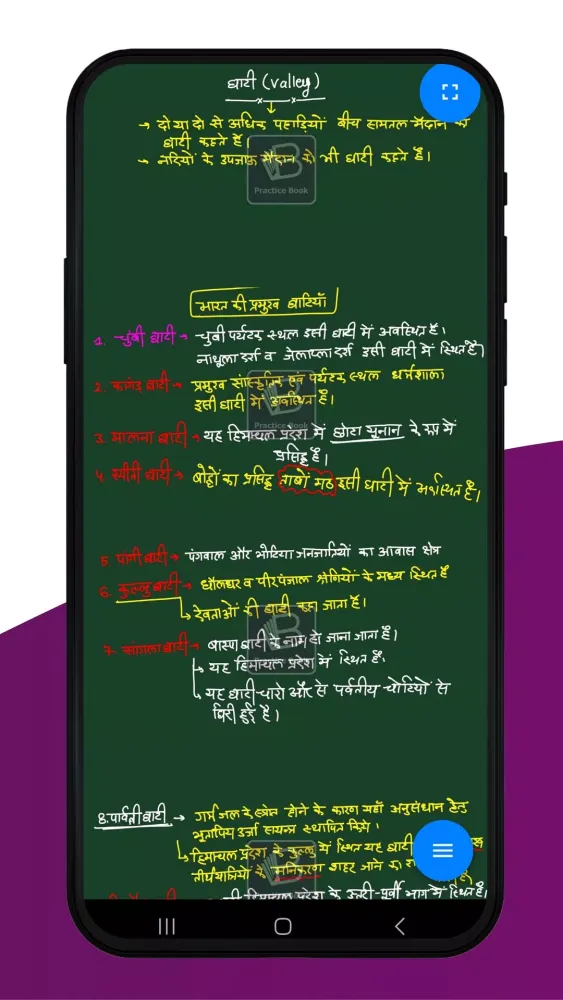 घाटी (valley)
→ दो या दो से अधिक पहाड़ियों बीच समतल मैदान को
घाटी कहते हैं।
→ नदियों के उपजाऊ मैदान को भी घाटी कहते है।
Practice Book
भारत की प्रमुख घाटियाँ
1. चुंबी घाटी → चुंबी पर्यटक स्थल इसी घाटी में अवस्थित है।
नाथूला दर्रा व जेलाप्ला दर्रा इसी घाटी में स्थित है।
2. कागंड़ा घाटी → प्रमुख सांस्कृतिक एवं पर्यटक स्थल धर्मशाला
इसी घाटी में अवस्थित है।
Practice Book
3. मालना घाटी → यह हिमाचल प्रदेश में छोटा यूनान के रूप में
प्रसिद्ध है।
4. स्पीती घाटी → बौद्धों का प्रसिद्ध ताबों मठ इसी घाटी में अवस्थित है।
5. पांगी घाटी → पंगवाल और भोटिया जनजातियों का आवास क्षेत्र
6. कुल्लु घाटी → धौलाधर व पीरपंजाल श्रेणियों के मध्य स्थित है
देवताओं की घाटी कहा जाता है।
Practice Book
7. सांगला घाटी → बास्पा घाटी के नाम से जाना जाता है।
→ यह हिमाचल प्रदेश में स्थित है।
→ यह घाटी चारो और से पर्वतीय चोटियों से
घिरी हुई है।
8. पार्वती घाटी → गर्म जल के स्त्रोत होने के कारण यहाँ अनुसंधान हेतु
भूतापीय उर्जा सयन्त्र स्थापित किये।
→ हिमाचल प्रदेश के कुल्लू में स्थित यह घाटी
तीर्थयात्रियों के मनिकरण शहर जाने का
Practice Book
हिमाचल प्रदेश के उत्तरी-पूर्वी भाग में स्थित है।